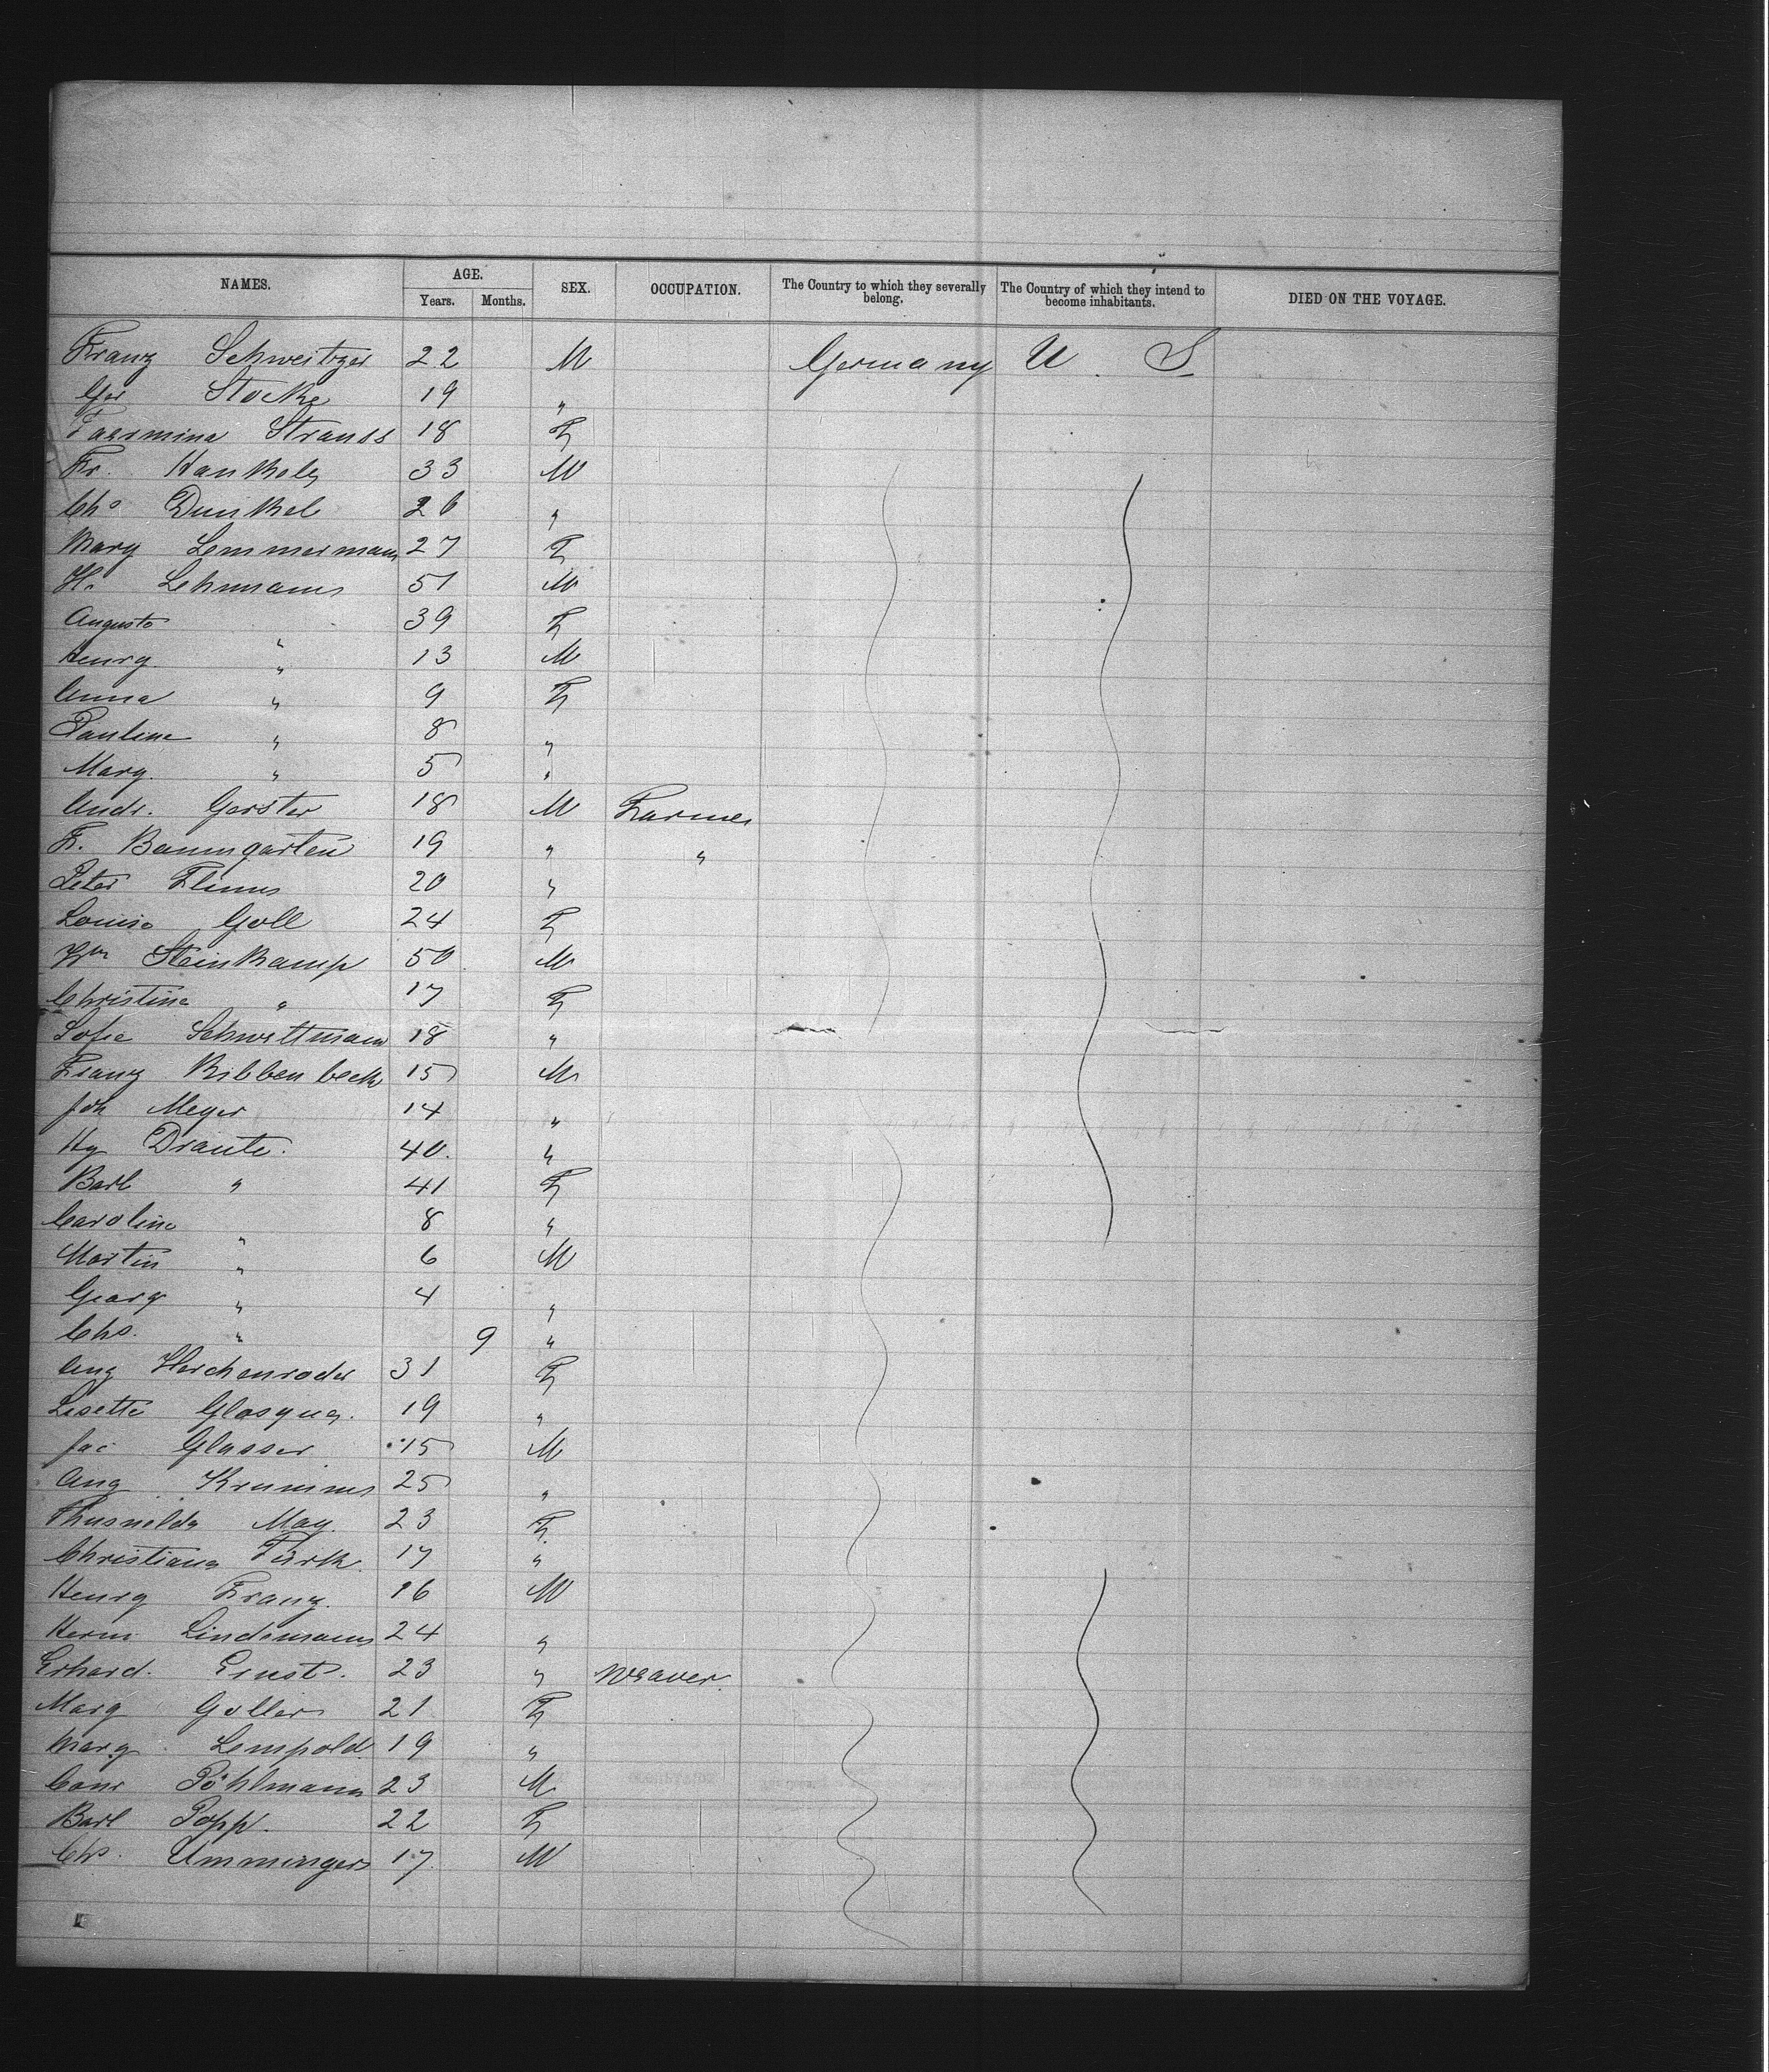 NAMES. AGE. SEX. OCCUPATION. The Country to which they severally belong. The Country of which they intend to become inhabitants. DIED ON THE VOYAGE.
Years. Months.
Franz Schweitzer 22 M Germany U. S
Stocke 19 "
Strauss 18 F
Fr. 33 M
Chs Dunkel 26 "
Mary Lemmermann 27 F
H. Lehmann 51 M
Augusta " 39 F
Henry " 13 M
Anna " 9 F
Pauline " 8 "
Mary " 5 "
Andr. Gerster 18 M Farmer
Fr. Baumgarten 19 " "
Peter 20 "
Louise Goll 24 F
Wm Steinkamp 50 M
Christine " 17 F
Sofie Schweltmann 18 "
Franz Ribbenbeck 15 M
Joh Meyer 14 "
Hy Draute. 40 "
Barb " 41 F
Caroline " 8 "
Martin " 6 M
Georg " 4 "
Chs. " 9 "
Aug Herchenroder 31 F
Lisette 19 "
Jac Glasser 15 M
Aug Krumm 25 "
Thusnelda May. 23 F
Christiana Türk 17 "
Henry Franz. 16 M
Herm Lindemann 24 "
Erhard. Ernst. 23 " Weaver.
Marg Goller 21 F
Marg Lempold 19 "
Conr Pöhlmann 23 M
Barb Popp. 22 F
Chs. Umminger 17 M